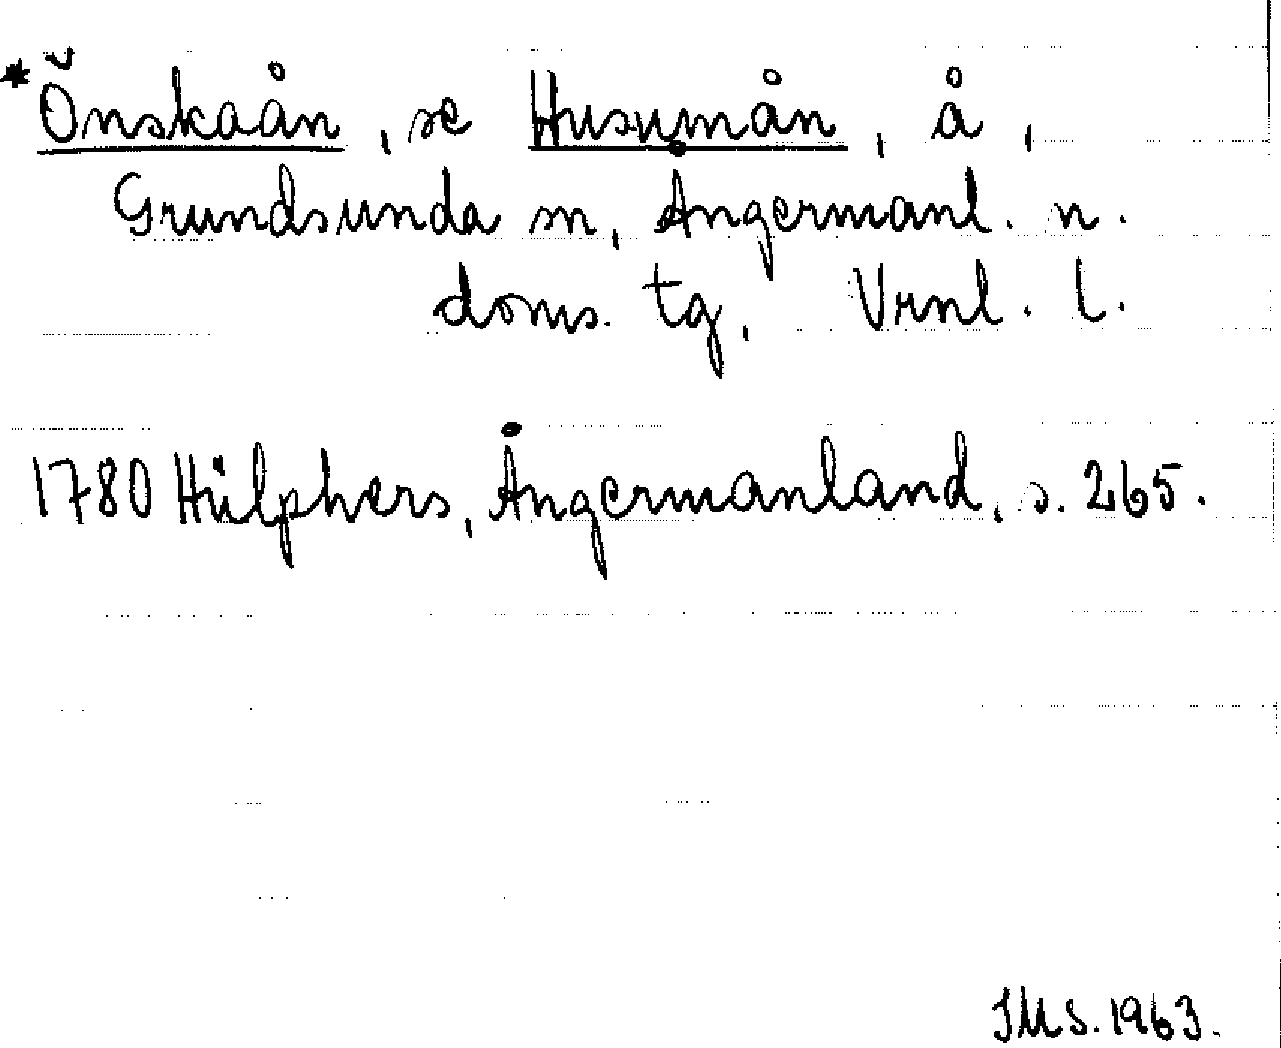 *Önskaån, se Husumån, å,
Grundsunda sn, Ångermanl. n.
doms. tg, Vrnl. l.
1780 Hülphers, Ångermanland, s. 265.
JMS. 1963.